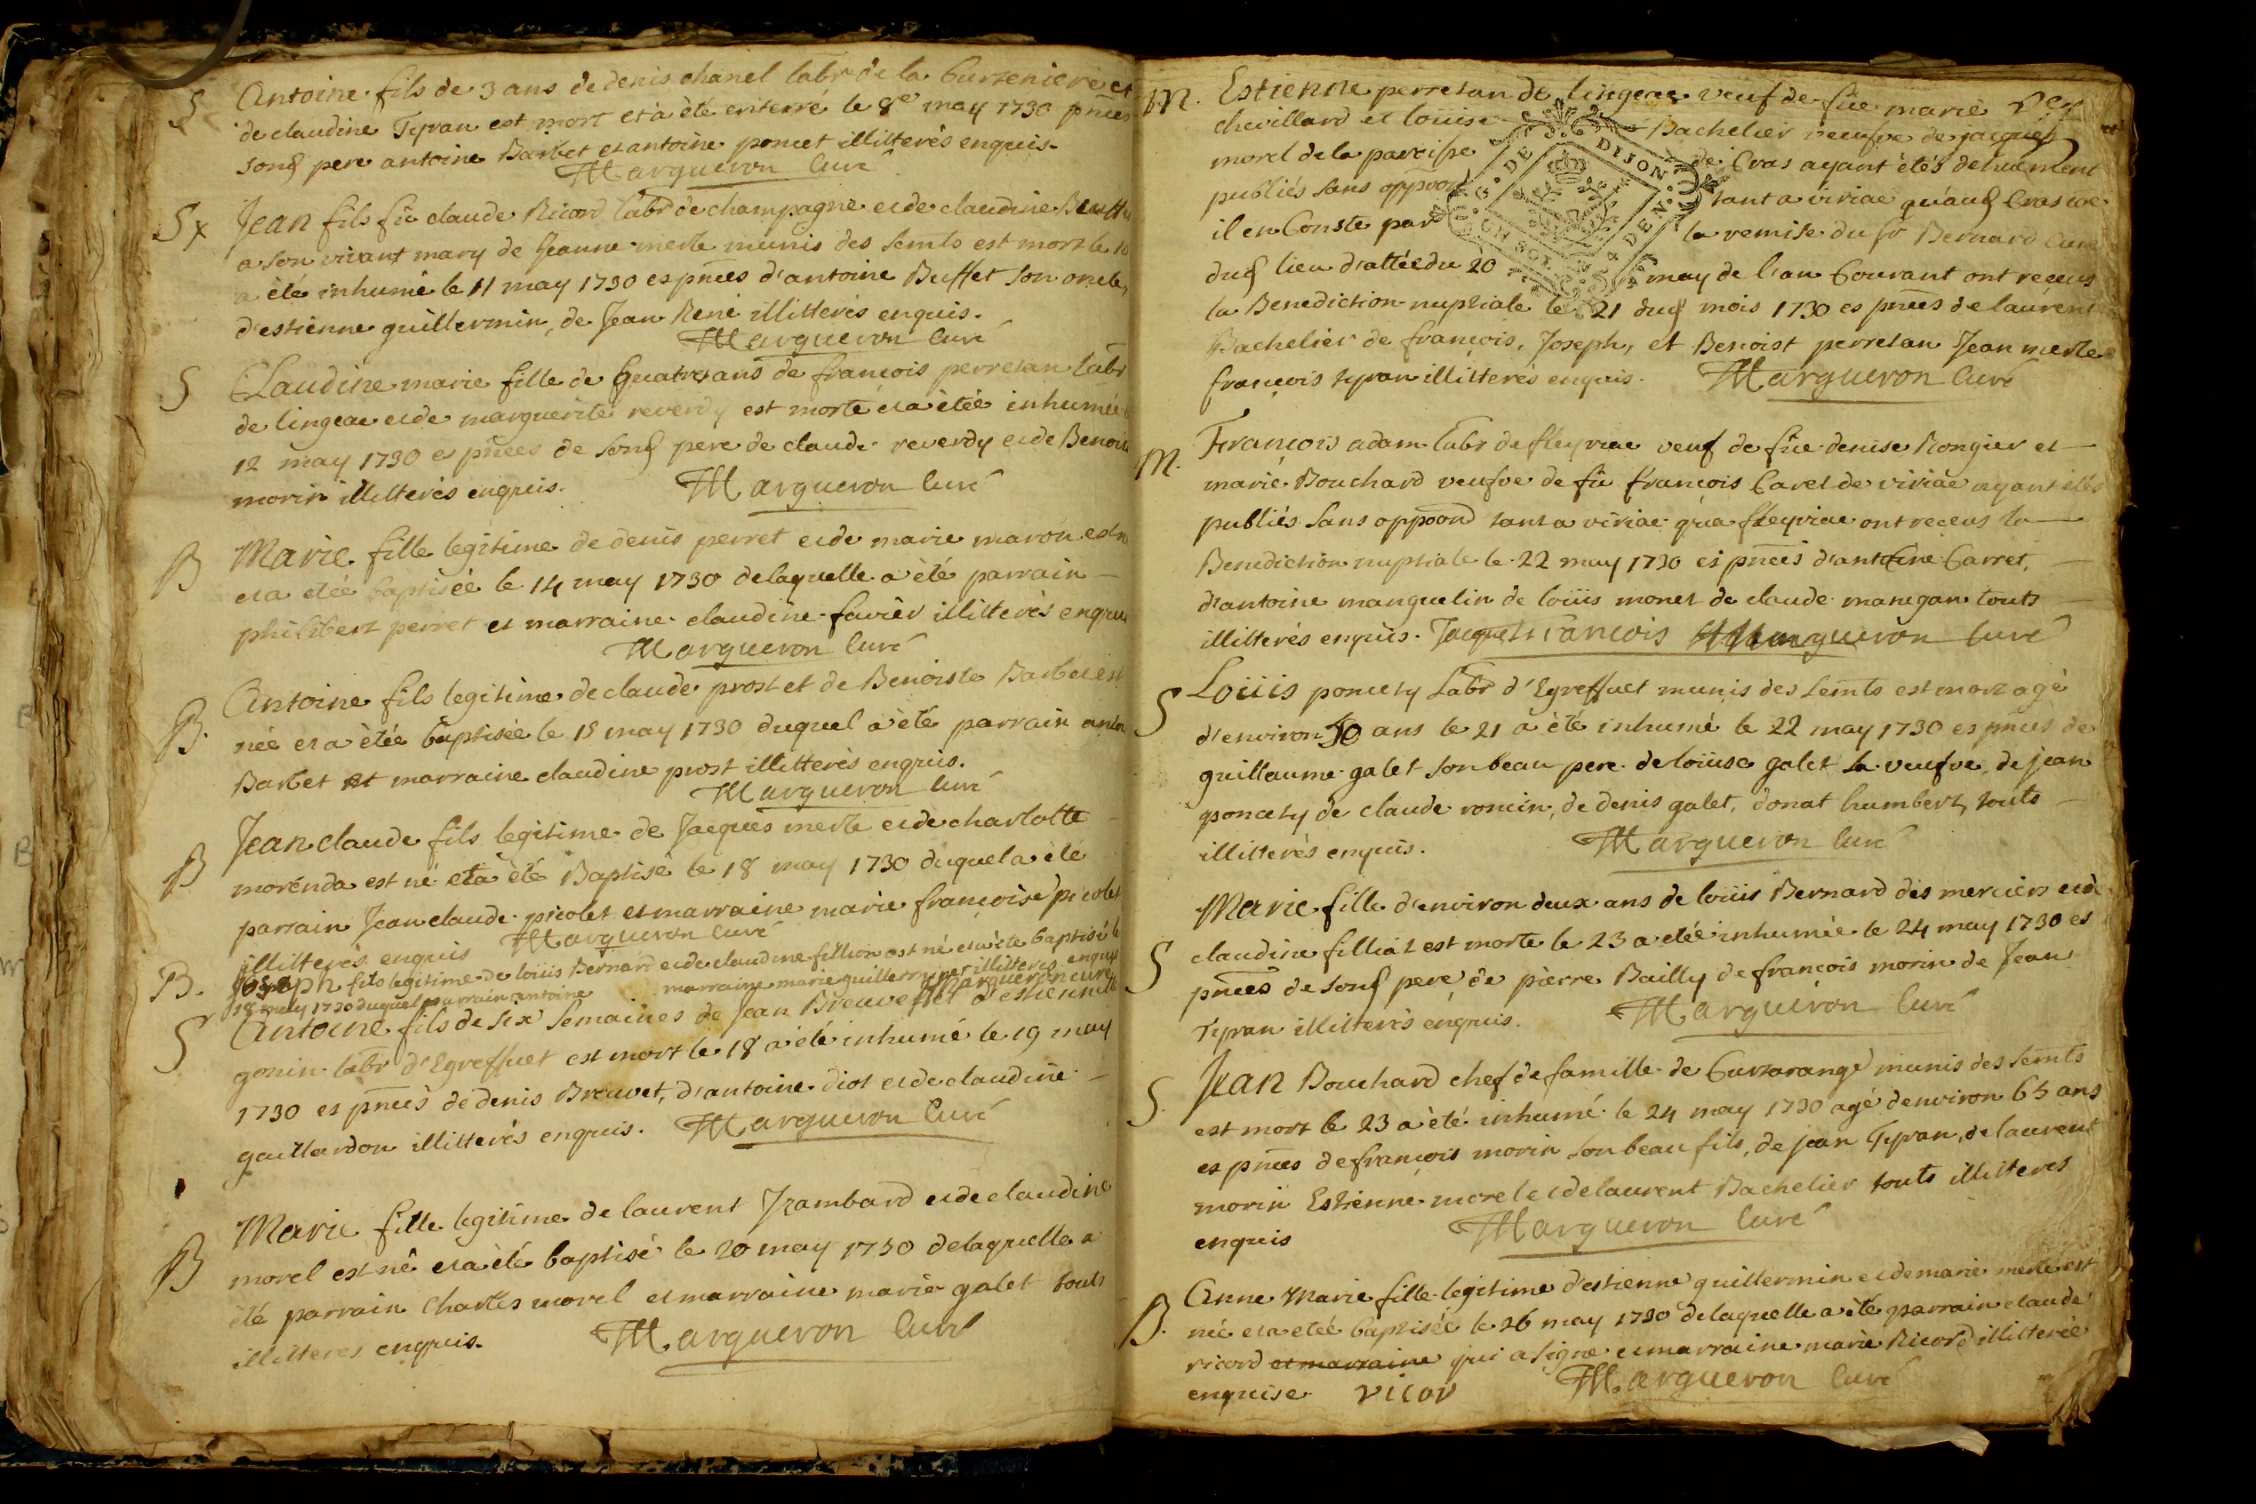 S
Antoine fils de 3 ans de denis chanel labr de la Curteniere et
de claudine Tyran est mort et a èté enterré le 8e may 1730 pnces
sond pere antoine Barbet et antoine poncet illitterés enquis.
Margueron Curé
Sx
Jean fils fû claude Ricord labr de champagne et de claudine Buffet
a son vivant mary de Jeanne merle munis des semts est mort le 10
a èté inhumé le 11 may 1730 es pnces d'antoine Buffet son oncle,
d'estienne guillermin, de Jean René illitterés enquis.
Margueron Curé
S
CLaudine marie fille de quatre ans de francois perretan labr
de lingeac et de marguerite reverdy est morte et a ètée inhumée
12 may 1730 es pnces de sond pere de claude reverdy et de Benoit
morin illitterés enquis.
Margueron Curé
B
Marie fille legitime de denis perret et de marie maron est né
et a etée baptisée le 14 may 1730 de laquelle a èté parrain
philibert perret et marraine claudine favier illitterés enquis
Margueron Curé
B.
Antoine fils legitime de claude prost et de Benoiste Barbet est
née et a ètée baptisée le 15 may 1730 duquel a èté parrain anto
Barbet et marraine claudine prost illitterés enquis.
Margueron Curé
B
Jean claude fils legitime de Jacques merle et de charlotte
morénda est né et a èté Baptisé le 18 may 1730 duquel a èté
parrain Jean claude picolet et marraine marie francoise picolet
illitterés enquis Margueron Curé
B.
Joseph fils legitime de loüis Bernard et de claudine fillion est né et a èté baptisé le
18 may 1730 duquel parrain antoine marraine marie guillermin illitteres enquis
Margueron curé
S
Antoine fils de six semaines de Jean Breuvet et d'estiennette
gonin labr d'Egreffuet est mort le 18 a èté inhumé le 19 may
1730 es pnces de denis Breuvet, d'antoine diot et de claudine
gaillardon illitterés enquis.
Margueron Curé
B
Marie fille legitime de laurent Jzambard et de claudine
morel est né et a èté baptisé le 20 may 1730 de laquelle a
èté parrain Charles morel et marraine marie galet touts
illitteres enquis.
Margueron Curé
M.
Estienne perretan de lingeac veuf de füe marie
chevillard et loüise Bachelier veufve de jacques
morel de la paroisse de Cras ayant ètés dehuement
publiés sans oppoon tant a viriac qu'aud Cras coe
il en Conste par la remise du sr Bernard Curé
dud lieu dattée du 20 may de l'an Courant ont receus
la Benediction nuptiale le 21 dud mois 1730 es pnces de laurent
Bachelier de francois, Joseph, et Benoist perretan Jean merle
francois tyran illitterés enquis.
Margueron Curé
G. DE DIJON.
M.
Francois adam labr de fleyriac veuf de füe denise Rongier et
marie Bouchard veufve de fû francois Caret de viriac ayant etés
publiés sans oppoon tant a viriac qu'a fleyriac ont receus la
Benediction nuptiale le 22 may 1730 es pnces d'antoine Carret,
d'antoine manguelin de loüis monet de claude manegan touts
illitterés enquis. Jacque francois Margueron Curé
S
Loüis poncety Labr d'Egreffuet munis des semts est mort agé
d'environ 50 ans le 21 a èté inhumé le 22 may 1730 es pnces de
guillaume galet son beau pere de loüise galet sa veufve, de jean
poncety de claude roncin, de denis galet, donat humbert, touts
illitterés enquis.
Margueron Curé
S
Marie fille d'environ deux ans de loüis Bernard des merciers et de
claudine filliat est morte le 23 a etée inhumée le 24 may 1730 es
pnces de sond pere de pierre Bailly de francois morin de Jean
Tyran illitterés enquis.
Margueron Curé
S.
Jean Bouchard chef de famille de Curtarange munis des semts
est mort le 23 a èté inhumé le 24 may 1730 agé denviron 65 ans
es pnces de francois morin son beau fils, de jean Tyran, de laurent
morin Estienne morel et de laurent Bachelier touts illitteres
enquis
Margueron Curé
B.
Anne Marie fille legitime d'estienne guillermin et de marie merle est
née et a etée baptisée le 26 may 1730 de laquelle a èté parrain claude
ricord et marraine qui a signé et marraine marie Ricord illitterée
enquise ricor
Margueron Curé